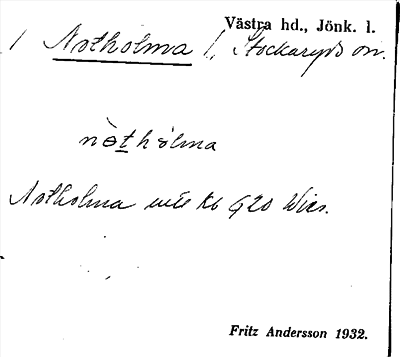 Västra hd., Jönk. l.
/ Notholma /, Stockaryds sn.
nòthólma
Notholma utis kb 920 Wies.
Fritz Andersson 1932.